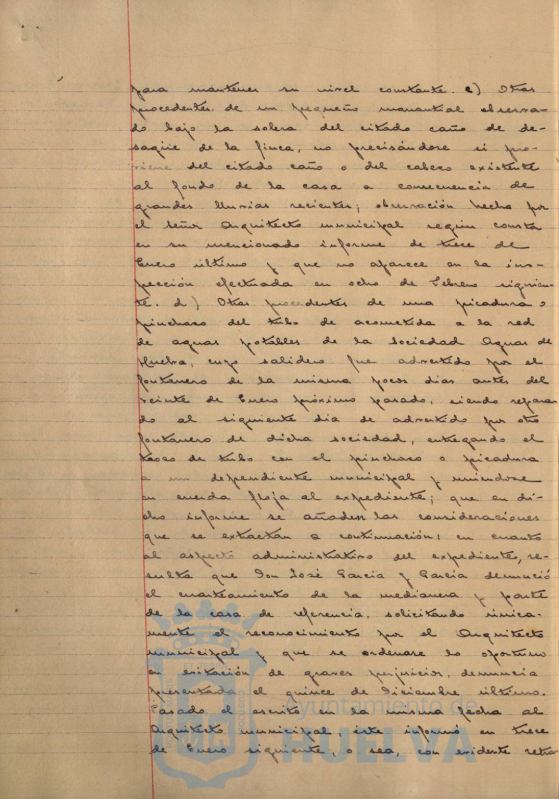 para mantener su nivel constante. c) Otras
procedentes de un pequeño manantial observa-
do bajo la solera del citado caño de de-
sagüe de la finca, no precisándose si pro-
viene del citado caño o del cabezo existente
al fondo de la casa a consecuencia de
grandes lluvias recientes; observación hecha por
el Señor Arquitecto municipal según consta
en su mencionado informe de trece de
Enero último y que no aparece en la ins-
pección efectuada en ocho de Febrero siguien-
te. d) Otras procedentes de una picadura o
pinchazo del tubo de acometida a la red
de aguas potables de la Sociedad Aguas de
Huelva, cuyo salidero fue advertido por el
fontanero de la misma pocos dias antes del
veinte de Enero próximo pasado, siendo repara-
do al siguiente dia de advertido por otro
fontanero de dicha sociedad, entregando el
trozo de tubo con el pinchazo o picadura
a un dependiente municipal y uniendose
en cuerda floja al expediente; que en di-
cho informe se añaden las consideraciones
que se extractan a continuación: en cuanto
al aspecto administrativo del expediente, re-
sulta que Don José García y García denunció
el cuarteamiento de la medianera y parte
de la casa de referencia, solicitando única-
mente el reconocimiento por el Arquitecto
municipal y que se ordenare lo oportuno
en evitación de graves perjuicios, denuncia
presentada el quince de Diciembre último.
Pasado el escrito en la misma fecha al
Arquitecto municipal, éste informó en trece
de Enero siguiente, o sea, con evidente retra-
Ayuntamiento de
HUELVA